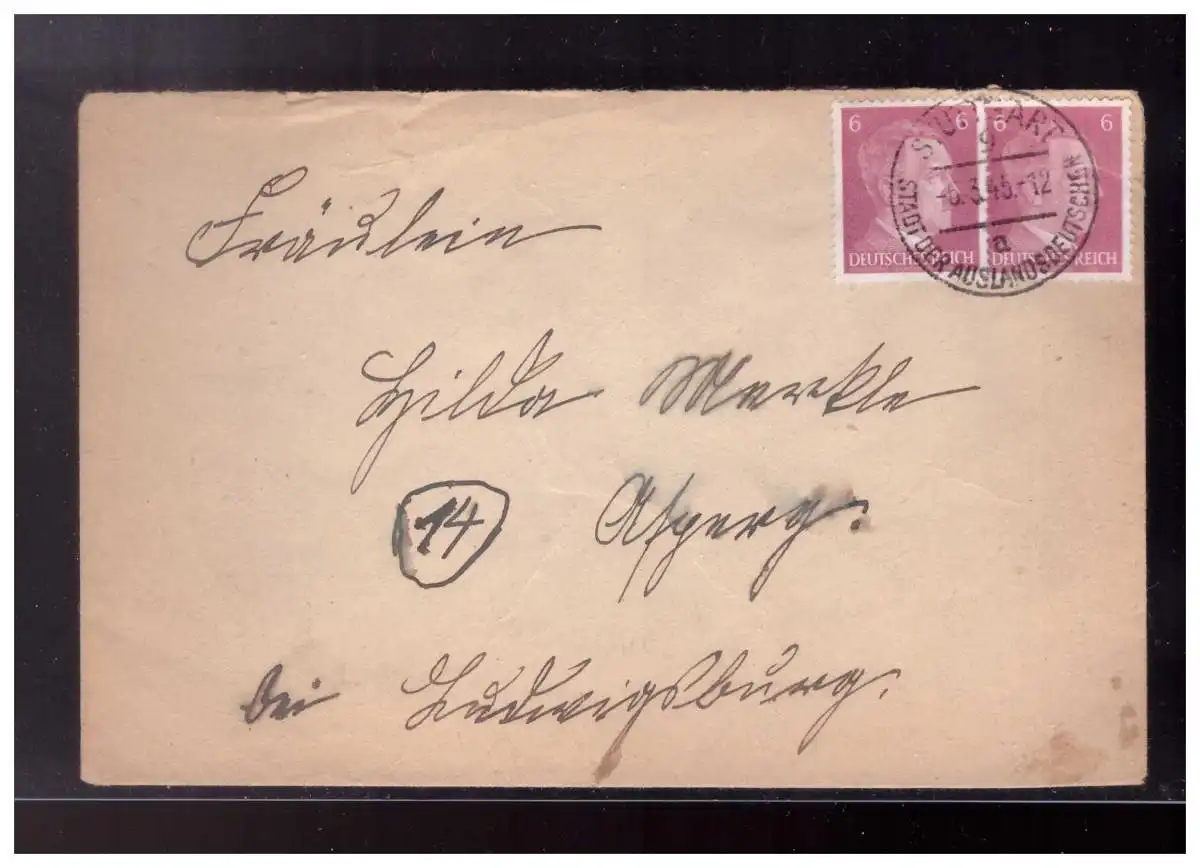 6 6 6 6
DEUTSCHES REICH DEUTSCHES REICH
STUTTGART
9
-6.3.45.-12
a
STADT DER AUSLANDSDEUTSCHEN
Fräulein
Hilda Merkle
14 Asperg.
bei Ludwigsburg.